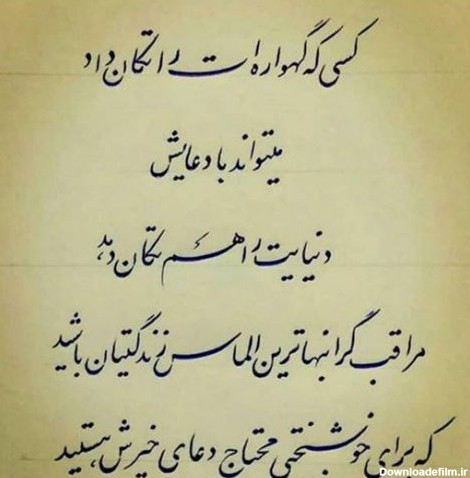 کسی که گهواره ات را تکان داد
میتواند با دعایش
دنیایت را هم تکان دهد
مراقب گرانبهاترین الماس زندگیتان باشید
که برای خوشبختی محتاج دعای خیرش هستید
Downloadefilm.ir